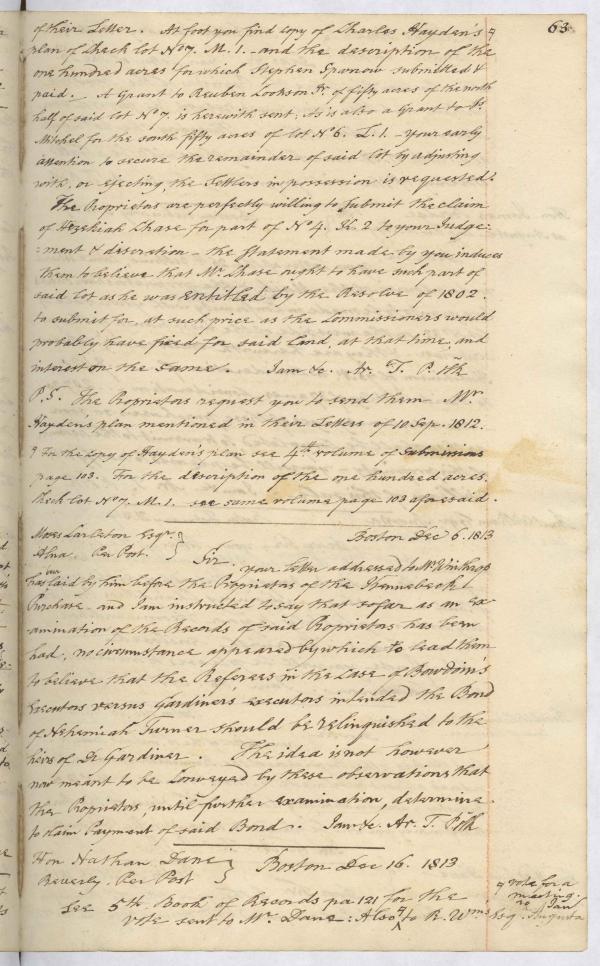 63
of their Letter. At foot you find copy of Charles Hayden's
plan of Check lot No 7. M. 1. - and the description of the
one hundred acres for which Stephen Sparrow submitted &
paid. - A Grant to Reuben Cookson Jr. of fifty acres of the north
half of said lot No 7. is herewith sent: As is also a Grant to
Mitchel for the south fifty acres of lot No 6. L. 1. - your early
attention to secure the remainder of said lot by adjusting
with, or ejecting, the Settlers in possession is requested.
The Proprietors are perfectly willing to submit the claim
of Hezekiah Chase for part of No 4. K. 2 to your Judge:
:ment & discretion - the Statement made by you induces
them to believe that Mr. Chase ought to have such part of
said lot as he was entitled by the Resolve of 1802.
to submit for, at such price as the Commissioners would
probably have fixed for said Land, at that time, and
interest on the same. I am &c. Ar. T. P. Clk
P.S. The Proprietors request you to send them Mr
Hayden's plan mentioned in their Letters of 10 Sep. 1812.
For the copy of Hayden's plan see 4th volume of Submissions
page 103. For the description of the one hundred acres.
Check lot No 7. M. 1. see same volume page 103 aforesaid.
Moses Carleton Esqr. } Boston Dec 6. 1813
Alna. Per Post. }
Sir. your letter addressed to Mr Winthrop
has been laid by him before the Proprietors of the Kennebeck
Purchase - and I am instructed to say that so far as an Ex-
amination of the Records of said Proprietors has been
had, no circumstance appeared by which to lead them
to believe that the Referees in the Case of Bowdoin's
Executors versus Gardiner's executors intended the Bond
of Nehemiah Turner should be relinquished to the
heirs of Dr Gardiner. The idea is not however
now meant to be conveyed by these observations that
the Proprietors, until further examination, determine
to claim Payment of said Bond. I am &c. Ar. T. P. Clk
Hon Nathan Dane } Boston Dec 16. 1813
Beverly. Per Post }
See 5th Book of Records pa 121 for the
vote sent to Mr. Dane: Also to R. Wms Esq. Augusta
vote for a
meeting.
Jan